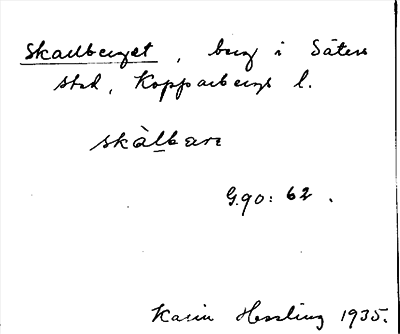 Skarlberget, berg i Säters
stad, Kopparbergs l.
skàlbarε
G.90: 62.
Karin Hessling 1935.